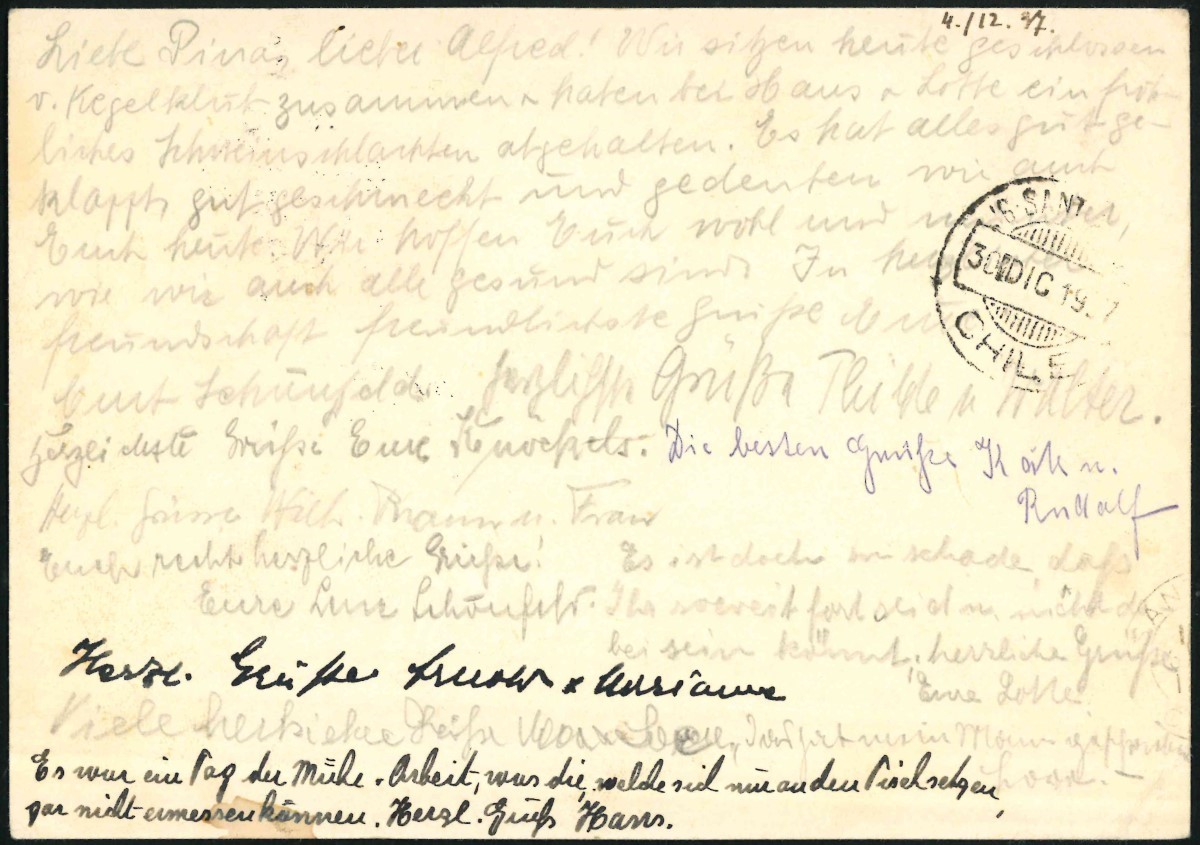 4./12.37.
Liebe Pina, lieber Alfred! Wir sitzen heute geschlossen
v. Kegelklub zusammen & haben bei Haus & Lotte ein fröh-
liches Schweinschlachten abgehalten. Es hat alles gut ge-
klappt, gut geschmeckt und gedenken wir auch
Euch heute. Wir hoffen Euch wohl und
wie wir auch alle gesund sind. In
freundschaft freundlichste Grüße
Curt Schönfeld. herzliche Grüße Thilde u Walter.
Herzlichste Grüße Eure Knöchels. Die besten Grüße Käth u.
Rudolf
Herzl. Grüsse Wilh. u. Frau
Euch recht herzliche Grüße! Es ist doch zu schade, daß
Eure Lene Schönfeld. Ihr soweit fort seid u. nicht
bei sein könnt, herzliche Grüße
Eure Lotte
Herzl. Grüße Arnold & Marianne
Viele herzliche Grüße
Es war ein Tag der Mühe & Arbeit, was die, welche sich nur an den Tisch setzen,
gar nicht ermessen können. Herzl. Gruß Hans.
30 DIC 19 7
CHILE